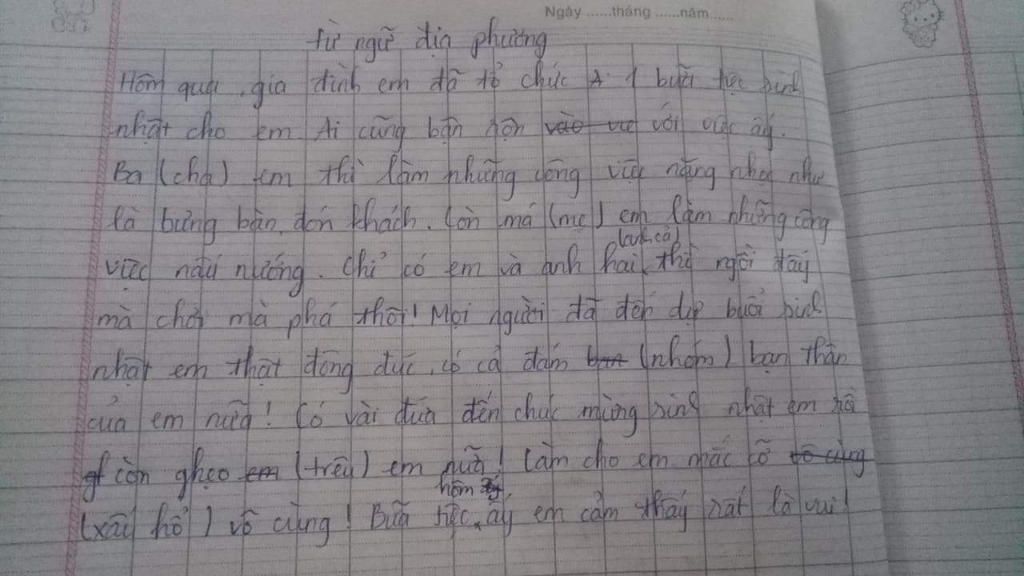 Ngày ......tháng ......năm......
Từ ngữ địa phương
Hôm qua, gia đình em đã tổ chức 1 buổi tiệc sinh
nhật cho em Ai cũng bận rộn với việc ấy.
Ba (cha) em thì làm những công việc nặng nhọc như
là bưng bàn, đón khách. Còn má (mẹ) em làm những công
việc nấu nướng. Chỉ có em và anh hai (anh cả) thì ngồi đấy
mà chơi mà phá thôi! Mọi người đã đến dự buổi sinh
nhật em thật đông đúc, có cả đám (nhóm) bạn thân
của em nữa! Có vài đứa đến chúc mừng sinh nhật em rồi
còn ghẹo (trêu) em nữa! Làm cho em mắc cỡ
(xấu hổ) vô cùng! Bữa tiệc hôm ấy em cảm thấy rất là vui!